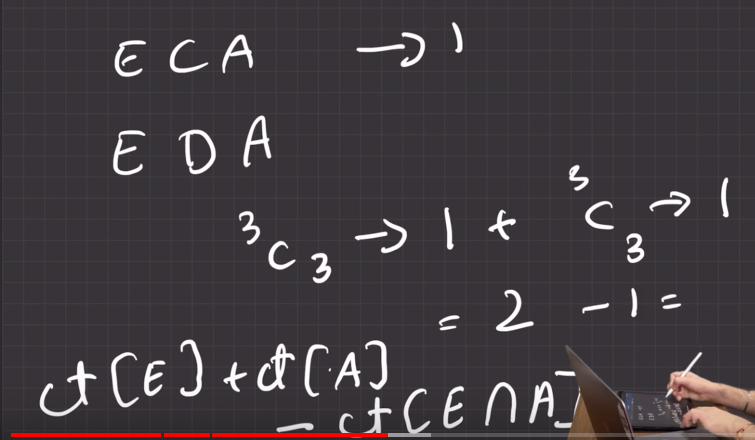 E C A → 1
E D A
³C₃ → 1 + ³C₃ → 1
= 2 - 1 =
ct[E] + ct[A]
- ct[E ∩ A]